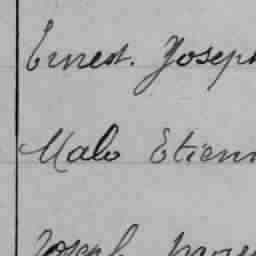 Ernest. Joseph
Malo Etienn
Joseph